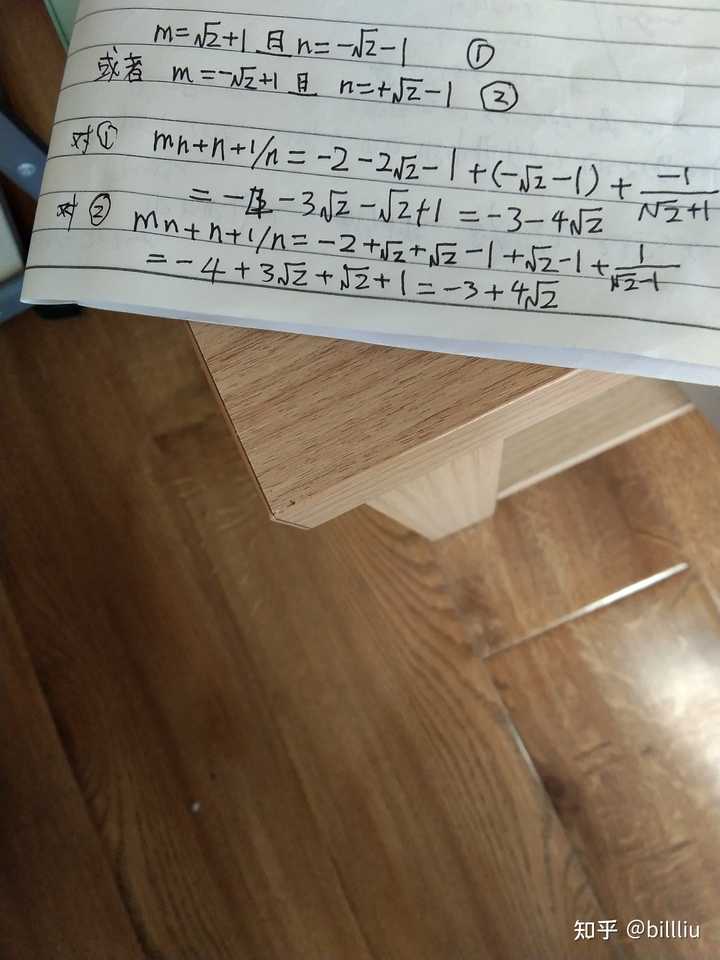 m=√2+1 且 n=-√2-1 ①
或者 m=-√2+1 且 n=+√2-1 ②
对① mn+n+1/n=-2-2√2-1+(-√2-1)+-1/(√2+1)
=- -3√2-√2+1=-3-4√2
对② mn+n+1/n=-2+√2+√2-1+√2-1+1/(√2-1)
=-4+3√2+√2+1=-3+4√2
知乎 @billliu